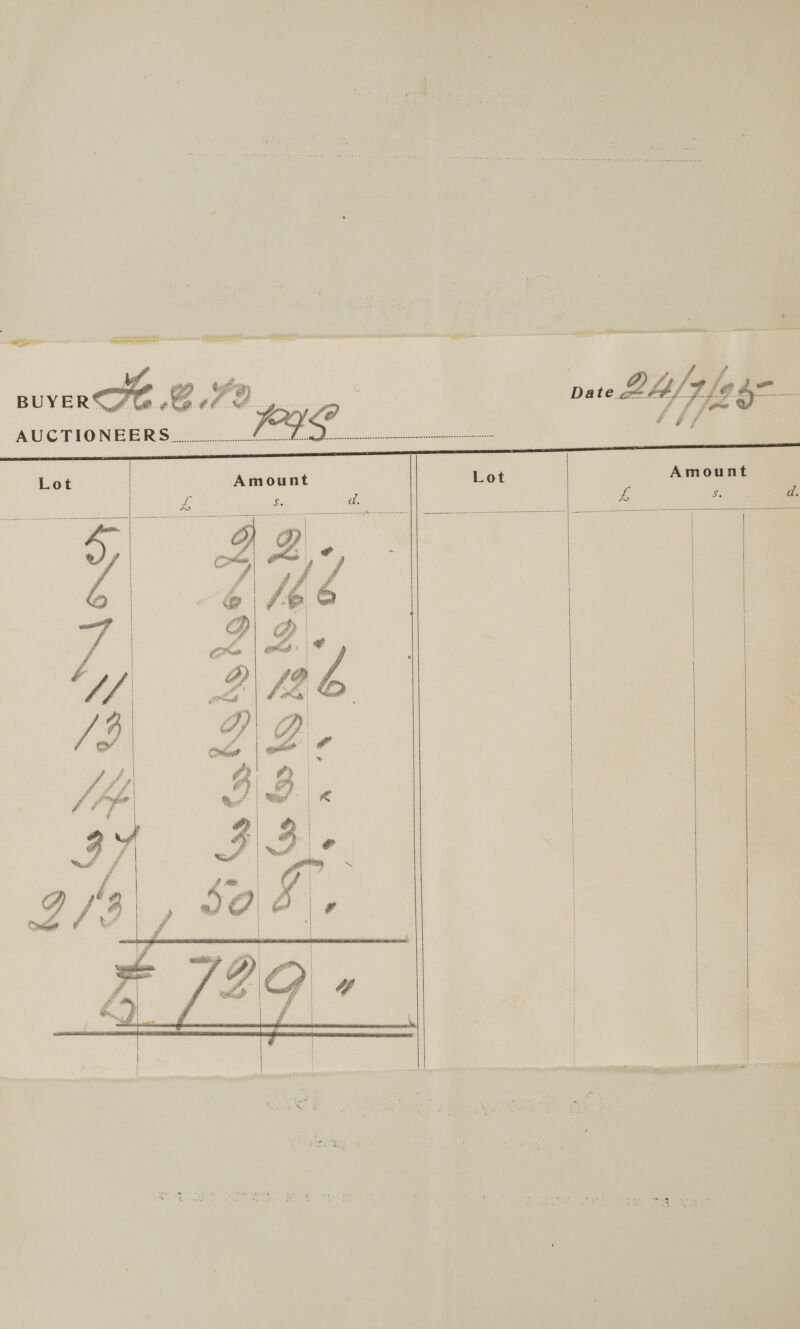 BUYER
Date 24/7/25
AUCTIONEERS P&S
Lot Amount Lot Amount
£ s. d. £ s. d.
5 2 2 .
6 6 16 6
7 2 2 .
11 2 12 6
13 2 2 .
14 3 3 .
37 3 3 .
213 50 8 .
£ 72 9 "